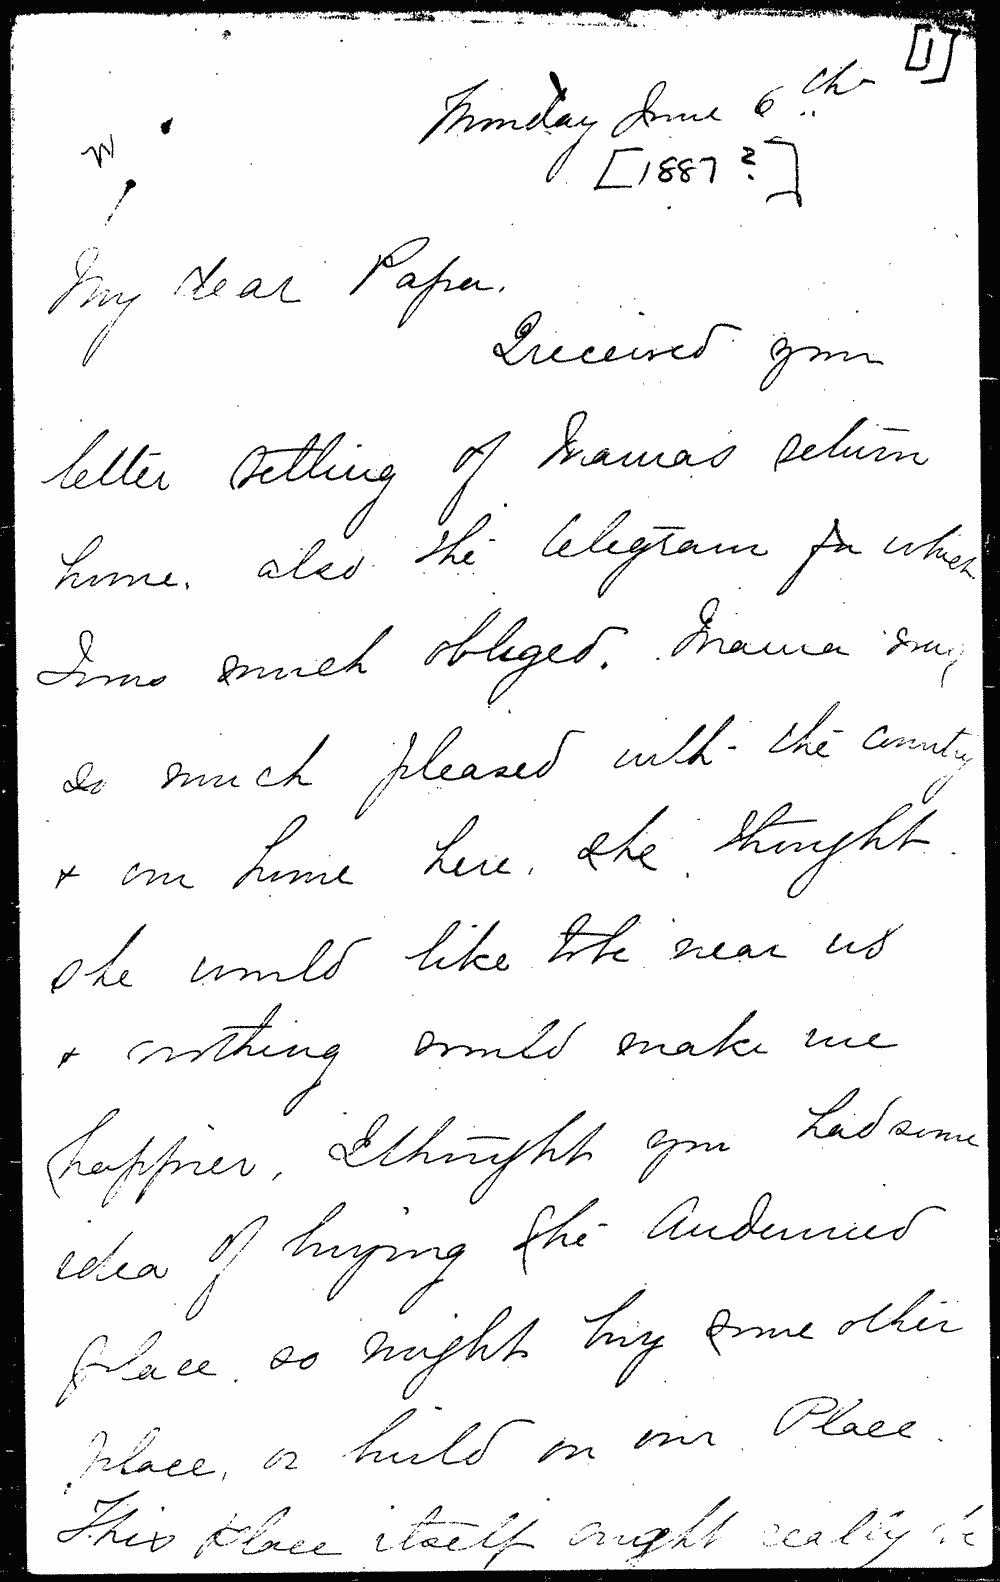 [1]
Monday June 6th
[1887?]
My dear Papa.
I received your
letter telling of Mamas return
home. also the telegram for which
I was much obliged. Mama was
so much pleased with the country
& our home here. she thought
she would like to be near us
& nothing would make me
happier, I thought you had some
idea of buying the
place. so might buy some other
place, or build on our Place.
This place itself ought really